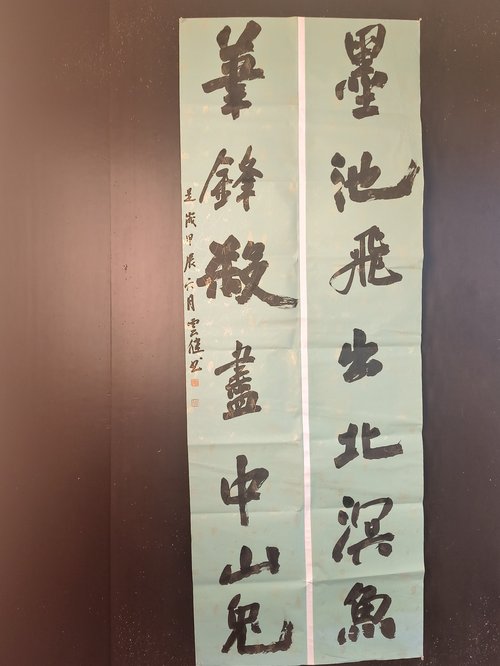 墨池飛出北溟魚
筆鋒殺盡中山兔
是歲甲辰六月雲健書